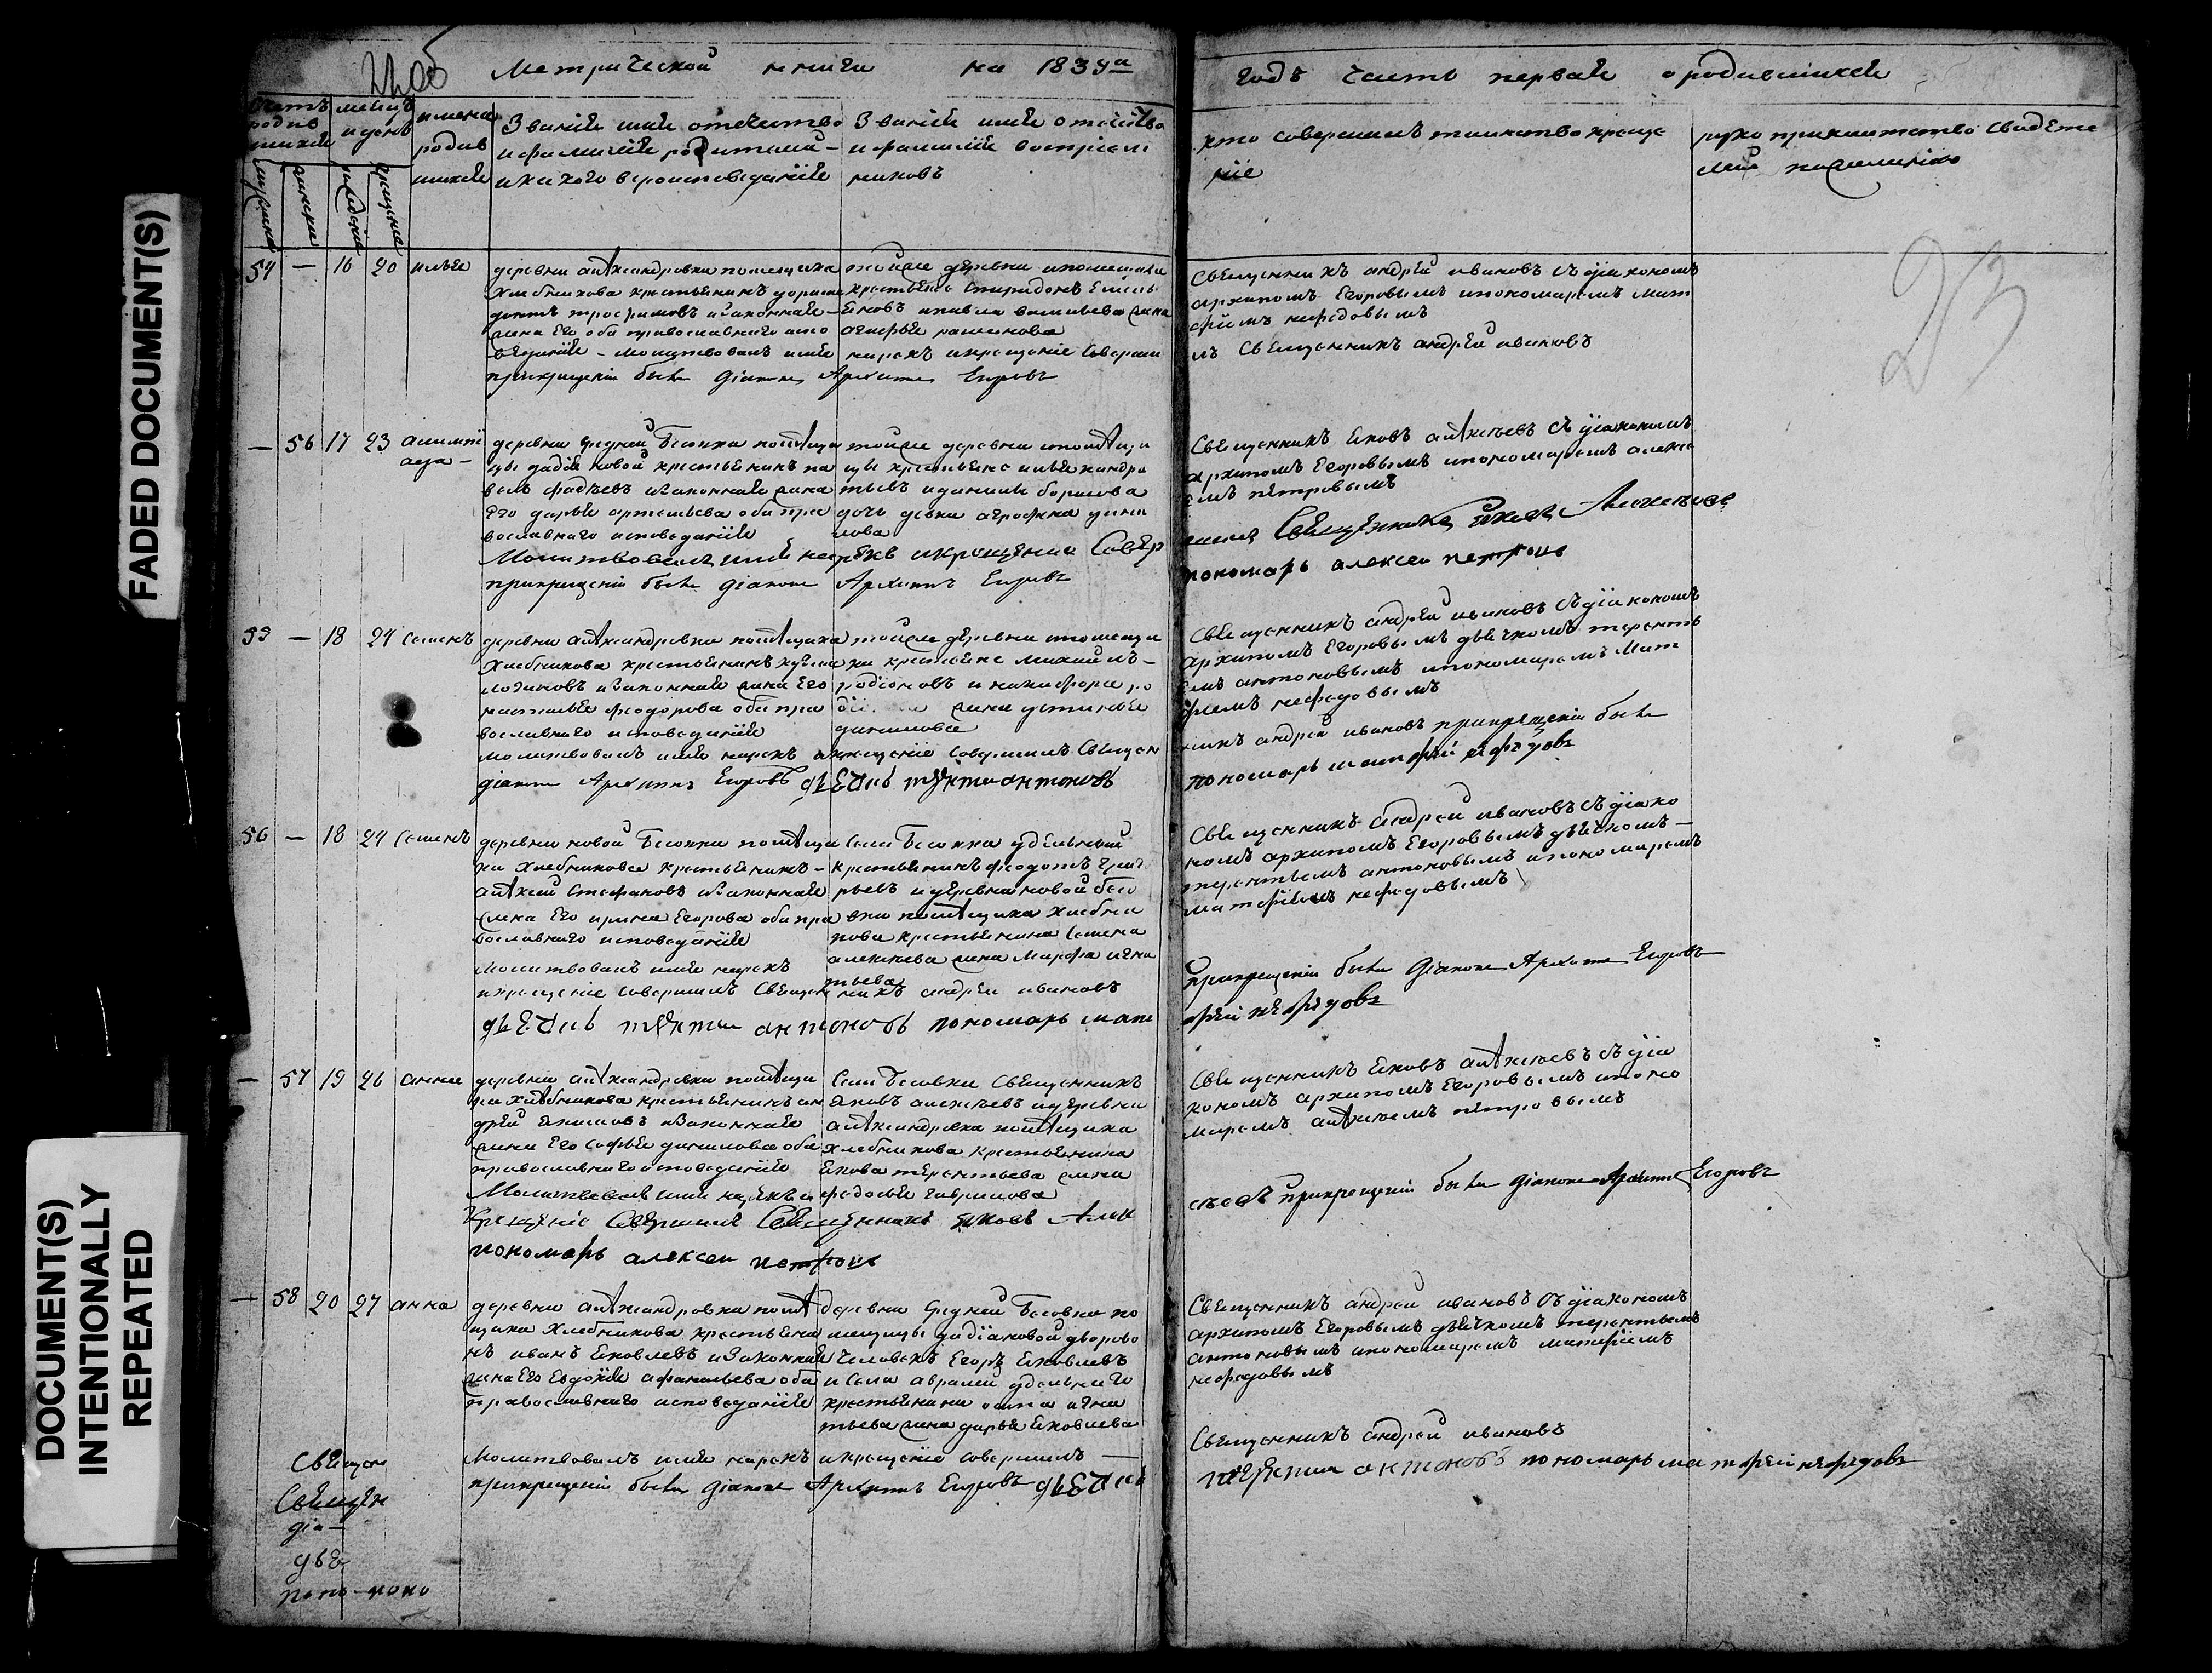 FADED DOCUMENT(S)
DOCUMENT(S)
INTENTIONALLY
REPEATED
Метрической книги на 1839а
годъ часть первая о родившихся
23
Звание имя отечество
и фамилия родителей
и какого вероисповедания
Звание имя отечество
и фамилия восприем
никовъ
кто совершалъ таинство креще
ние
рукоприкладство свидете
лей по желанию
16 20 илья
деревни александровки помещика
Хлебникова крестьянинъ
трофимовъ и законная
жена его оба православнаго испо
ведания молитвовалъ имя
прикрещении былъ Дiаконъ Архипъ Егоровъ
тойже деревни и помещика
крестьяне Спиридонъ Емель
яновъ и павла васильева жена
нарекъ и крещение соверши
Священникъ андрей ивановъ съ дiакономъ
архипомъ Егоровымъ и пономаремъ мат
фiемъ нефедовымъ
лъ Священникъ андрей ивановъ
— 56 17 23
деревни средней Бесовки помещи
цы новой крестьянинъ па
велъ фадеевъ и законная жена
его дарья артемьева оба пра
вославнаго исповедания
Молитвовалъ имя нарекъ и крещение Совер
прикрещении былъ дiаконъ Архипъ Егоровъ
тойже деревни и помещи
цы крестьяне илья кондра
тьевъ и данилы борисова
дочь девка
Священникъ Яковъ алексеевъ съ дiакономъ
архипомъ Егоровымъ и пономаремъ алексе
емъ петровымъ
шилъ Священникъ Яковъ Алексеевъ
пономарь алексеи петровъ
55 — 18 24 Семенъ
деревни александровки помещика
Хлебникова крестьянинъ
логиновъ и законная жена его
наталья феодорова оба пра
вославнаго исповедания
молитвовалъ имя нарекъ и крещение совершилъ Священ
дiаконъ Архипъ Егоровъ дьячекъ терентiи антоновъ
тойже деревни и помещи
ка крестьяне михайлъ
родiоновъ и никифора ро
жена устинья
данилова
Священникъ андрей ивановъ съ дiакономъ
архипомъ Егоровымъ дьячкомъ терентъ
емъ антоновымъ и пономаремъ Мат
фiемъ нефедовымъ
никъ андрей ивановъ прикрещении былъ
пономарь матфiи нефедовъ
56 — 18 24 Семенъ
деревни новой Бесовки помещи
ка Хлебникова крестьянинъ
алексей Стефановъ и законная
жена его ирина Егорова оба пра
вославнаго исповедания
молитвовалъ имя нарекъ
и крещение совершилъ Священникъ андреи ивановъ
дьячекъ терентiи антоновъ пономарь мат
Села Бесовки удельный
крестьянинъ феодотъ григо
рьевъ и деревни новой бесо
вки помещика хлебни
кова крестьянина Семена
алексеева жена Марфа игна
тьева
Священникъ андрей ивановъ съ дiако
номъ архипомъ Егоровымъ дьячкомъ
терентьемъ антоновымъ и пономаремъ
матфiемъ нефедовымъ
прикрещении былъ дiаконъ Архипъ Егоровъ
фiи нефедовъ
— 57 19 26 анна
деревни александровки помещи
ка Хлебникова крестьянинъ ан
дрей и законная
жена его софья данилова оба
православнаго исповедания
Молитвовалъ имя нарекъ и
Крещенiе Совершилъ Священникъ Яковъ Алек
пономарь алексеи петровъ
Села Бесовки Священникъ
Яковъ алексеевъ и деревни
александровки помещика
Хлебникова крестьянина
Якова терентьева жена
федосья гаврилова
Священникъ Яковъ алексеевъ съ дiа
кономъ архипомъ Егоровымъ и поно
маремъ алексеемъ петровымъ
сеевъ прикрещении былъ дiаконъ Архипъ Егоровъ
— 58 20 27 анна
деревни александровки поме
щика Хлебникова крестьяни
нъ иванъ Яковлевъ и законная
жена его Евдокия афанасьева оба
православнаго исповедания
Молитвовалъ имя нарекъ и крещение совершилъ —
прикрещении былъ дiаконъ Архипъ Егоровъ дьячекъ
деревни средней Бесовки по
мещицы дворово
человекъ Егоръ Яковлевъ
и Села авралей удельнаго
крестьянина осипа игна
тьева жена дарья Яковлева
Священникъ андрей ивановъ съ дiакономъ
архипомъ Егоровымъ дьячкомъ терентьемъ
антоновымъ и пономаремъ матфiемъ
нефедовымъ
Священникъ андрей ивановъ
терентiи антоновъ пономарь матфеи нефедовъ
Священ
Священ
дiа—
дья
поно-поно